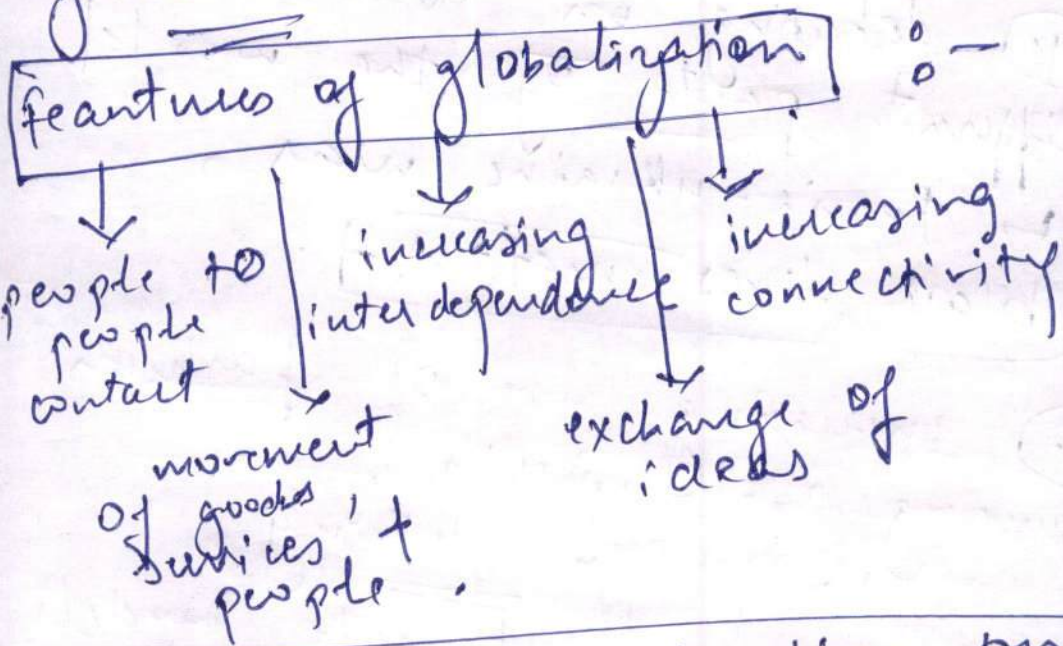 Feartures of globalization :-
people to
people
contact
movement
of goods,
services, +
people.
increasing
interdependence
exchange of
ideas
increasing
connectivity